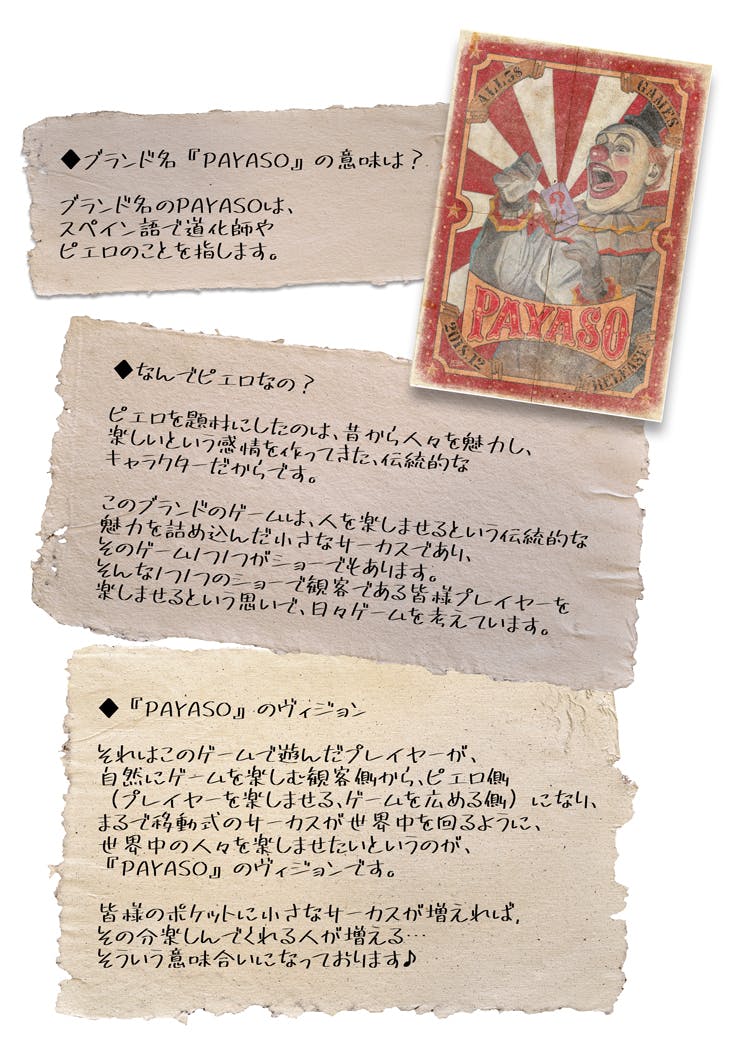 ◆ブランド名『PAYASO』の意味は？
ブランド名のPAYASOは、
スペイン語で道化師や
ピエロのことを指します。
ALL 5$ GAMES
PAYASO
2018.12 RELEASE
◆なんでピエロなの？
ピエロを題材にしたのは、昔から人々を魅力し、
楽しいという感情を作ってきた、伝統的な
キャラクターだからです。
このブランドのゲームは、人を楽しませるという伝統的な
魅力を詰め込んだ小さなサーカスであり、
そのゲーム1つ1つがショーでもあります。
そんな1つ1つのショーで観客である皆様プレイヤーを
楽しませるという思いで、日々ゲームを考えています。
◆『PAYASO』のヴィジョン
それはこのゲームで遊んだプレイヤーが、
自然にゲームを楽しむ観客側から、ピエロ側
（プレイヤーを楽しませる、ゲームを広める側）になり、
まるで移動式のサーカスが世界中を回るように、
世界中の人々を楽しませたいというのが、
『PAYASO』のヴィジョンです。
皆様のポケットに小さなサーカスが増えれば、
その分楽しんでくれる人が増える…
そういう意味合いになっております♪